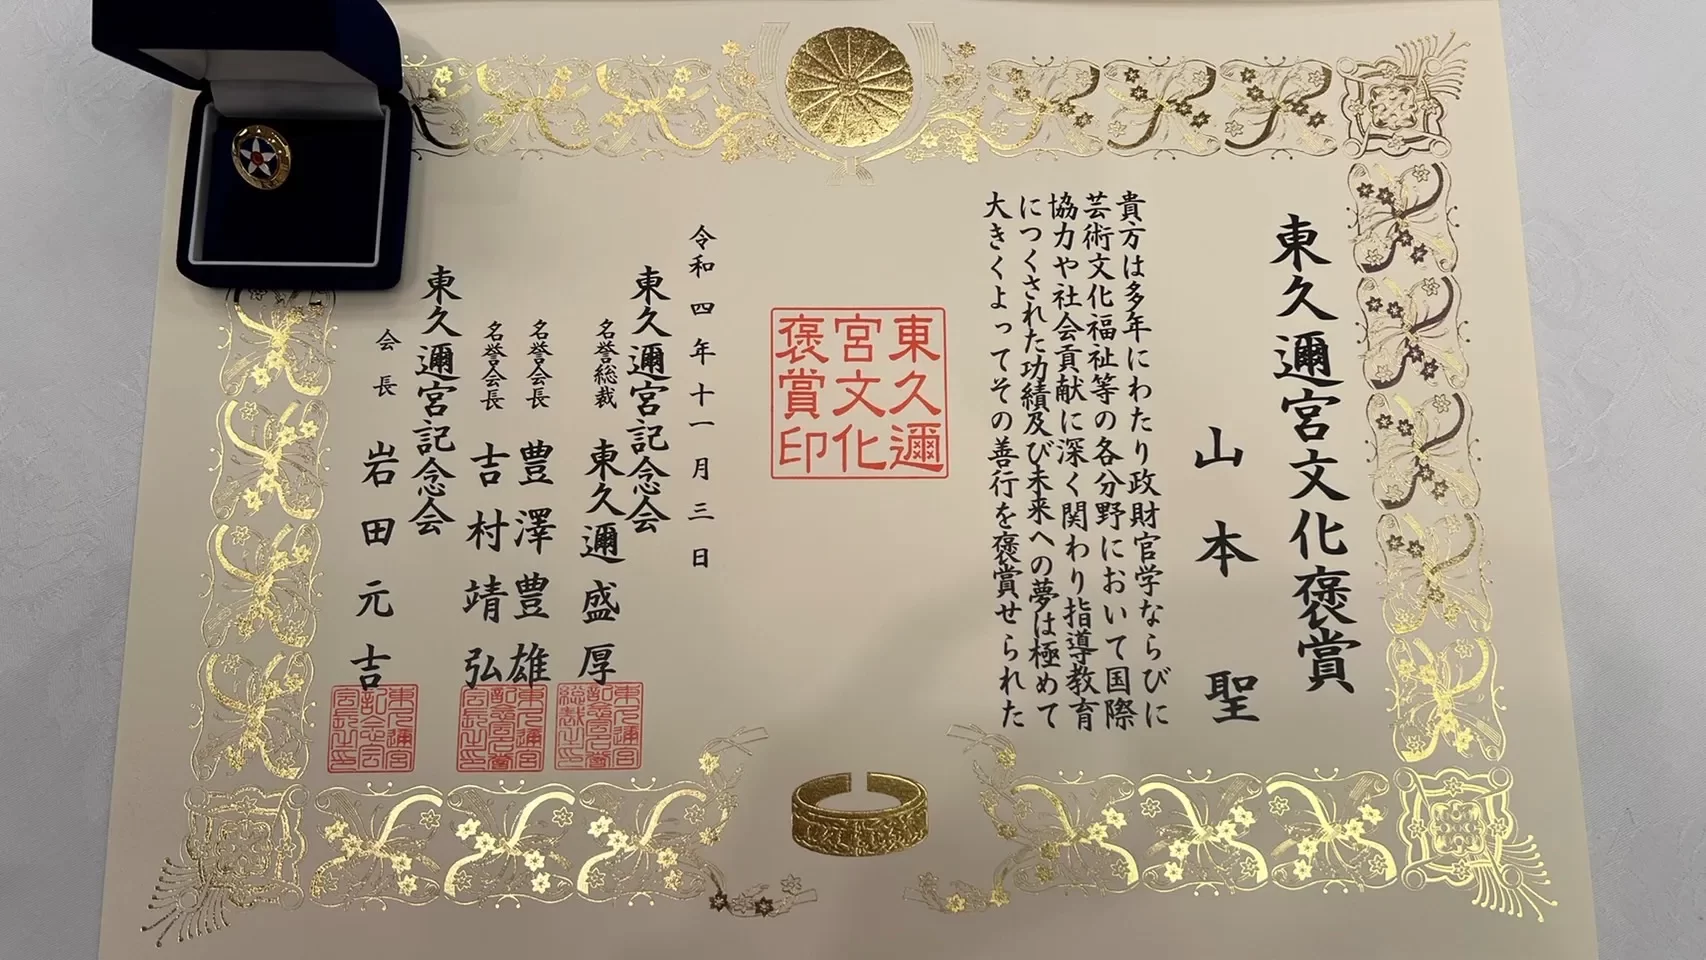 東久邇宮文化褒賞
山本聖
貴方は多年にわたり政財官学ならびに
芸術文化福祉等の各分野において国際
協力や社会貢献に深く関わり指導教育
につくされた功績及び未来への夢は極めて
大きくよってその善行を褒賞せられた
東久邇
宮文化
褒賞印
令和四年十一月三日
東久邇宮記念会
名誉総裁 東久邇盛厚
名誉会長 豊澤豊雄
名誉会長 吉村靖弘
東久邇宮記念会
会長 岩田元吉